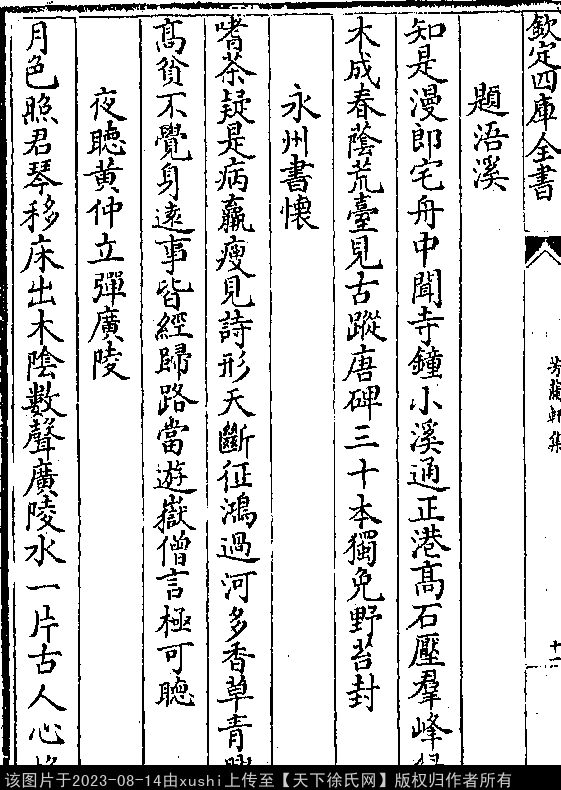 欽定四庫全書
芳蘭軒集
十一
題浯溪
知是漫郎宅舟中聞寺鐘小溪通正港高石壓羣峰
木成春蔭荒臺見古蹤唐碑三十本獨免野苔封
永州書懷
嗜茶疑是病羸瘦見詩形天斷征鴻過河多香草青
高貧不覺身遠事皆經歸路當遊嶽僧言極可聽
夜聽黃仲立彈廣陵
月色照君琴移床出木陰數聲廣陵水一片古人心
该图片于2023-08-14由xushi上传至【天下徐氏网】版权归作者所有